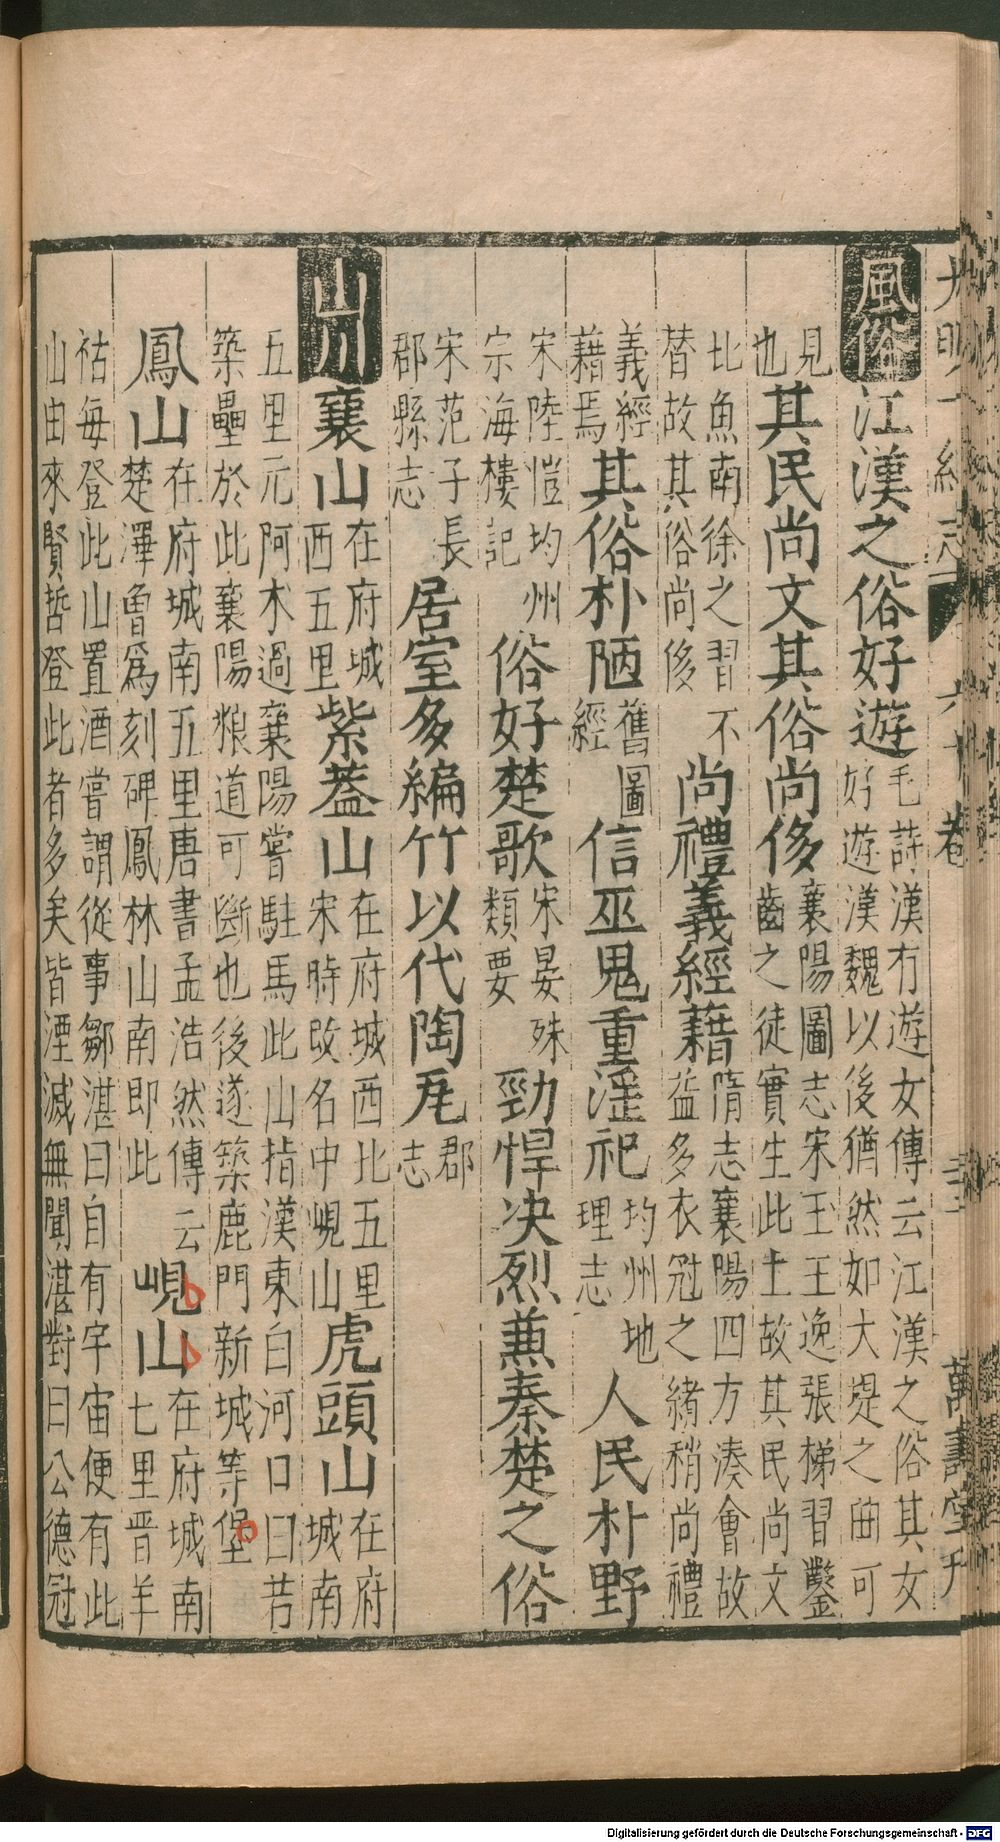 大明一統志 六十卷 三 萬壽堂刊
風俗 江漢之俗好遊 毛詩漢有遊女傳云江漢之俗其女
好遊漢魏以後猶然如大堤之曲可
見 襄陽圖志宋玉王逸張悌習鑿
也 其民尚文其俗尚侈 齒之徒實生此土故其民尚文
比魚南徐之習不 隋志襄陽四方湊會故
替故其俗尚侈 尚禮義經籍 益多衣冠之緒稍尚禮
義經 舊圖 均州地
藉焉 其俗朴陋 經 信巫鬼重淫祀 理志 人民朴野
宋陸愷均州 宋晏殊
宗海樓記 俗好楚歌 類要 勁悍決烈兼秦楚之俗
宋范子長 郡
郡縣志 居室多編竹以代陶瓦 志
山川 襄山 在府城
西五里 紫葢山 在府城西北五里
宋時改名中峴山 虎頭山 在府
城南
五里元阿木過襄陽嘗駐馬此山指漢東白河口曰若
築壘於此襄陽粮道可斷也後遂築鹿門新城等堡
鳳山 在府城南五里唐書孟浩然傳云
楚澤魯爲刻碑鳳林山南即此 峴山 在府城南
七里晉羊
祜每登此山置酒嘗謂從事鄒湛曰自有宇宙便有此
山由來賢哲登此者多矣皆湮滅無聞湛對曰公德冠
Digitalisierung gefördert durch die Deutsche Forschungsgemeinschaft - DFG